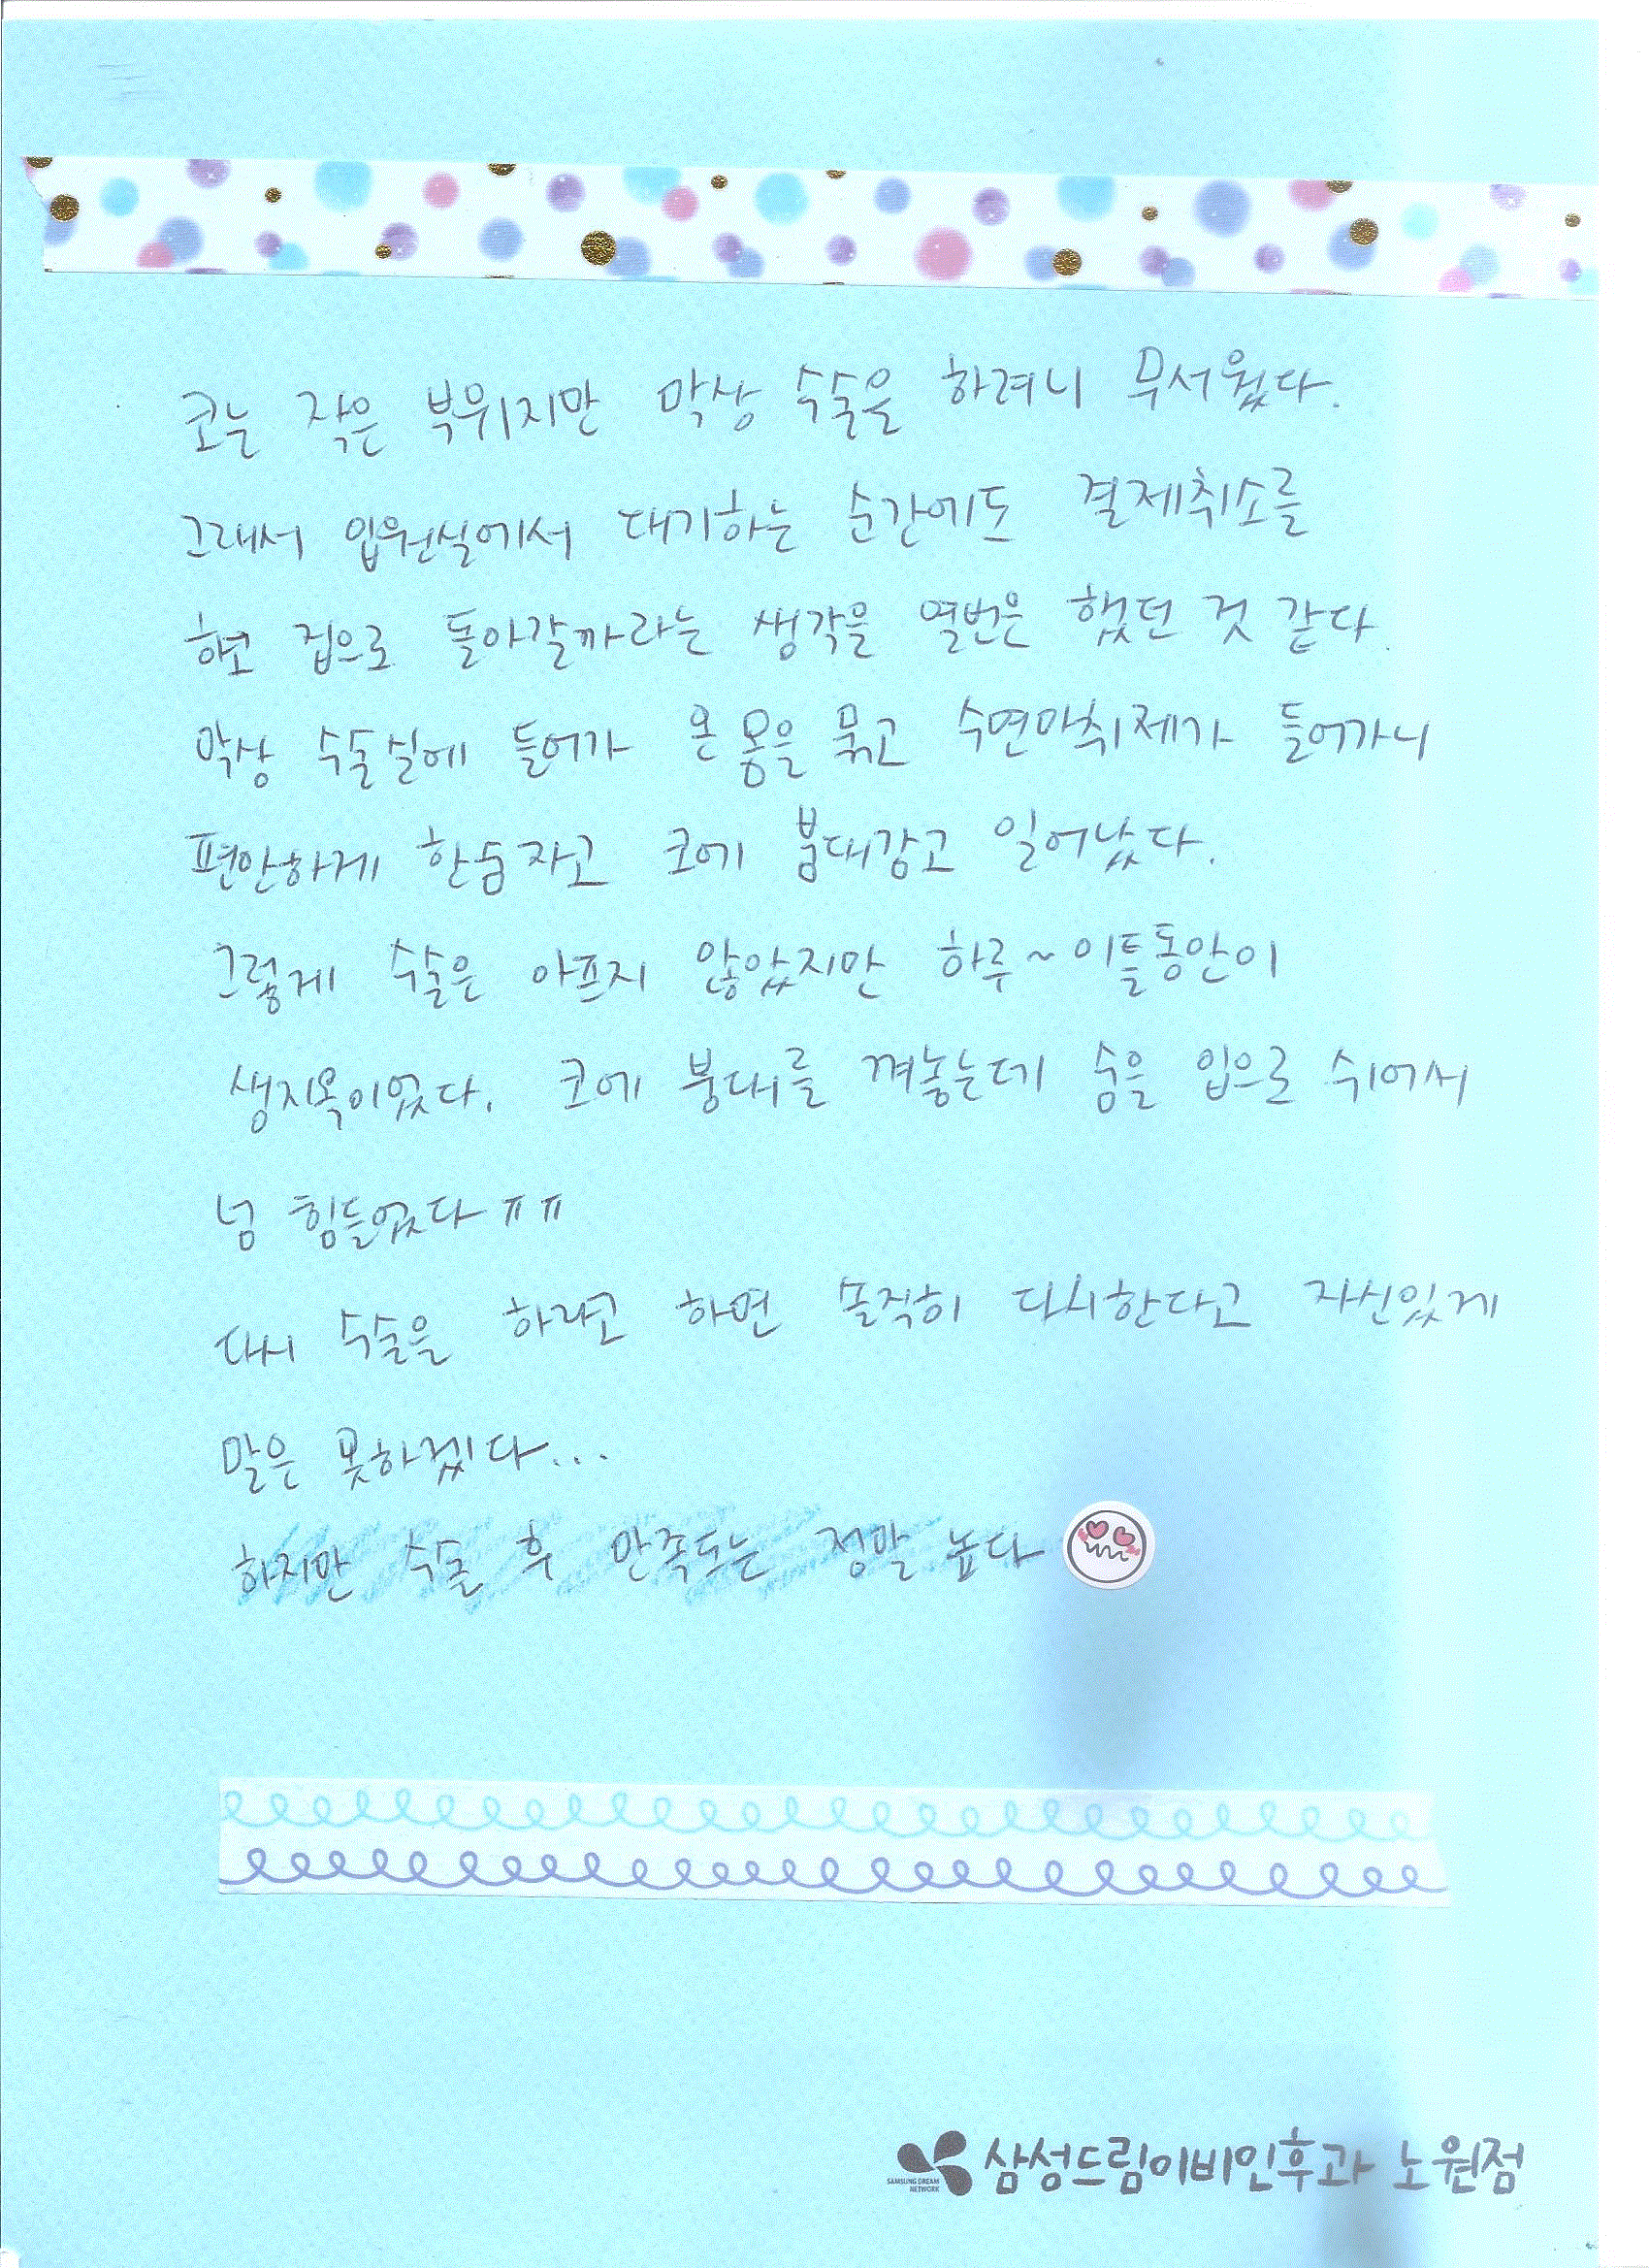 코는 작은 부위지만 막상 수술을 하려니 무서웠다.
그래서 입원실에서 대기하는 순간에도 결제취소를
하고 집으로 돌아갈까라는 생각을 열번은 했던 것 같다.
막상 수술실에 들어가 온 몸을 묶고 수면마취제가 들어가니
편안하게 한숨자고 코에 붕대감고 일어났다.
그렇게 수술은 아프지 않았지만 하루~이틀동안이
생지옥이었다. 코에 붕대를 껴놓는데 숨을 입으로 쉬어서
넘 힘들었다 ㅠㅠ
다시 수술을 하라고 하면 솔직히 다시한다고 자신있게
말은 못하겠다...
하지만 수술 후 만족도는 정말 높다
SAMSUNG DREAM
NETWORK
삼성드림이비인후과 노원점